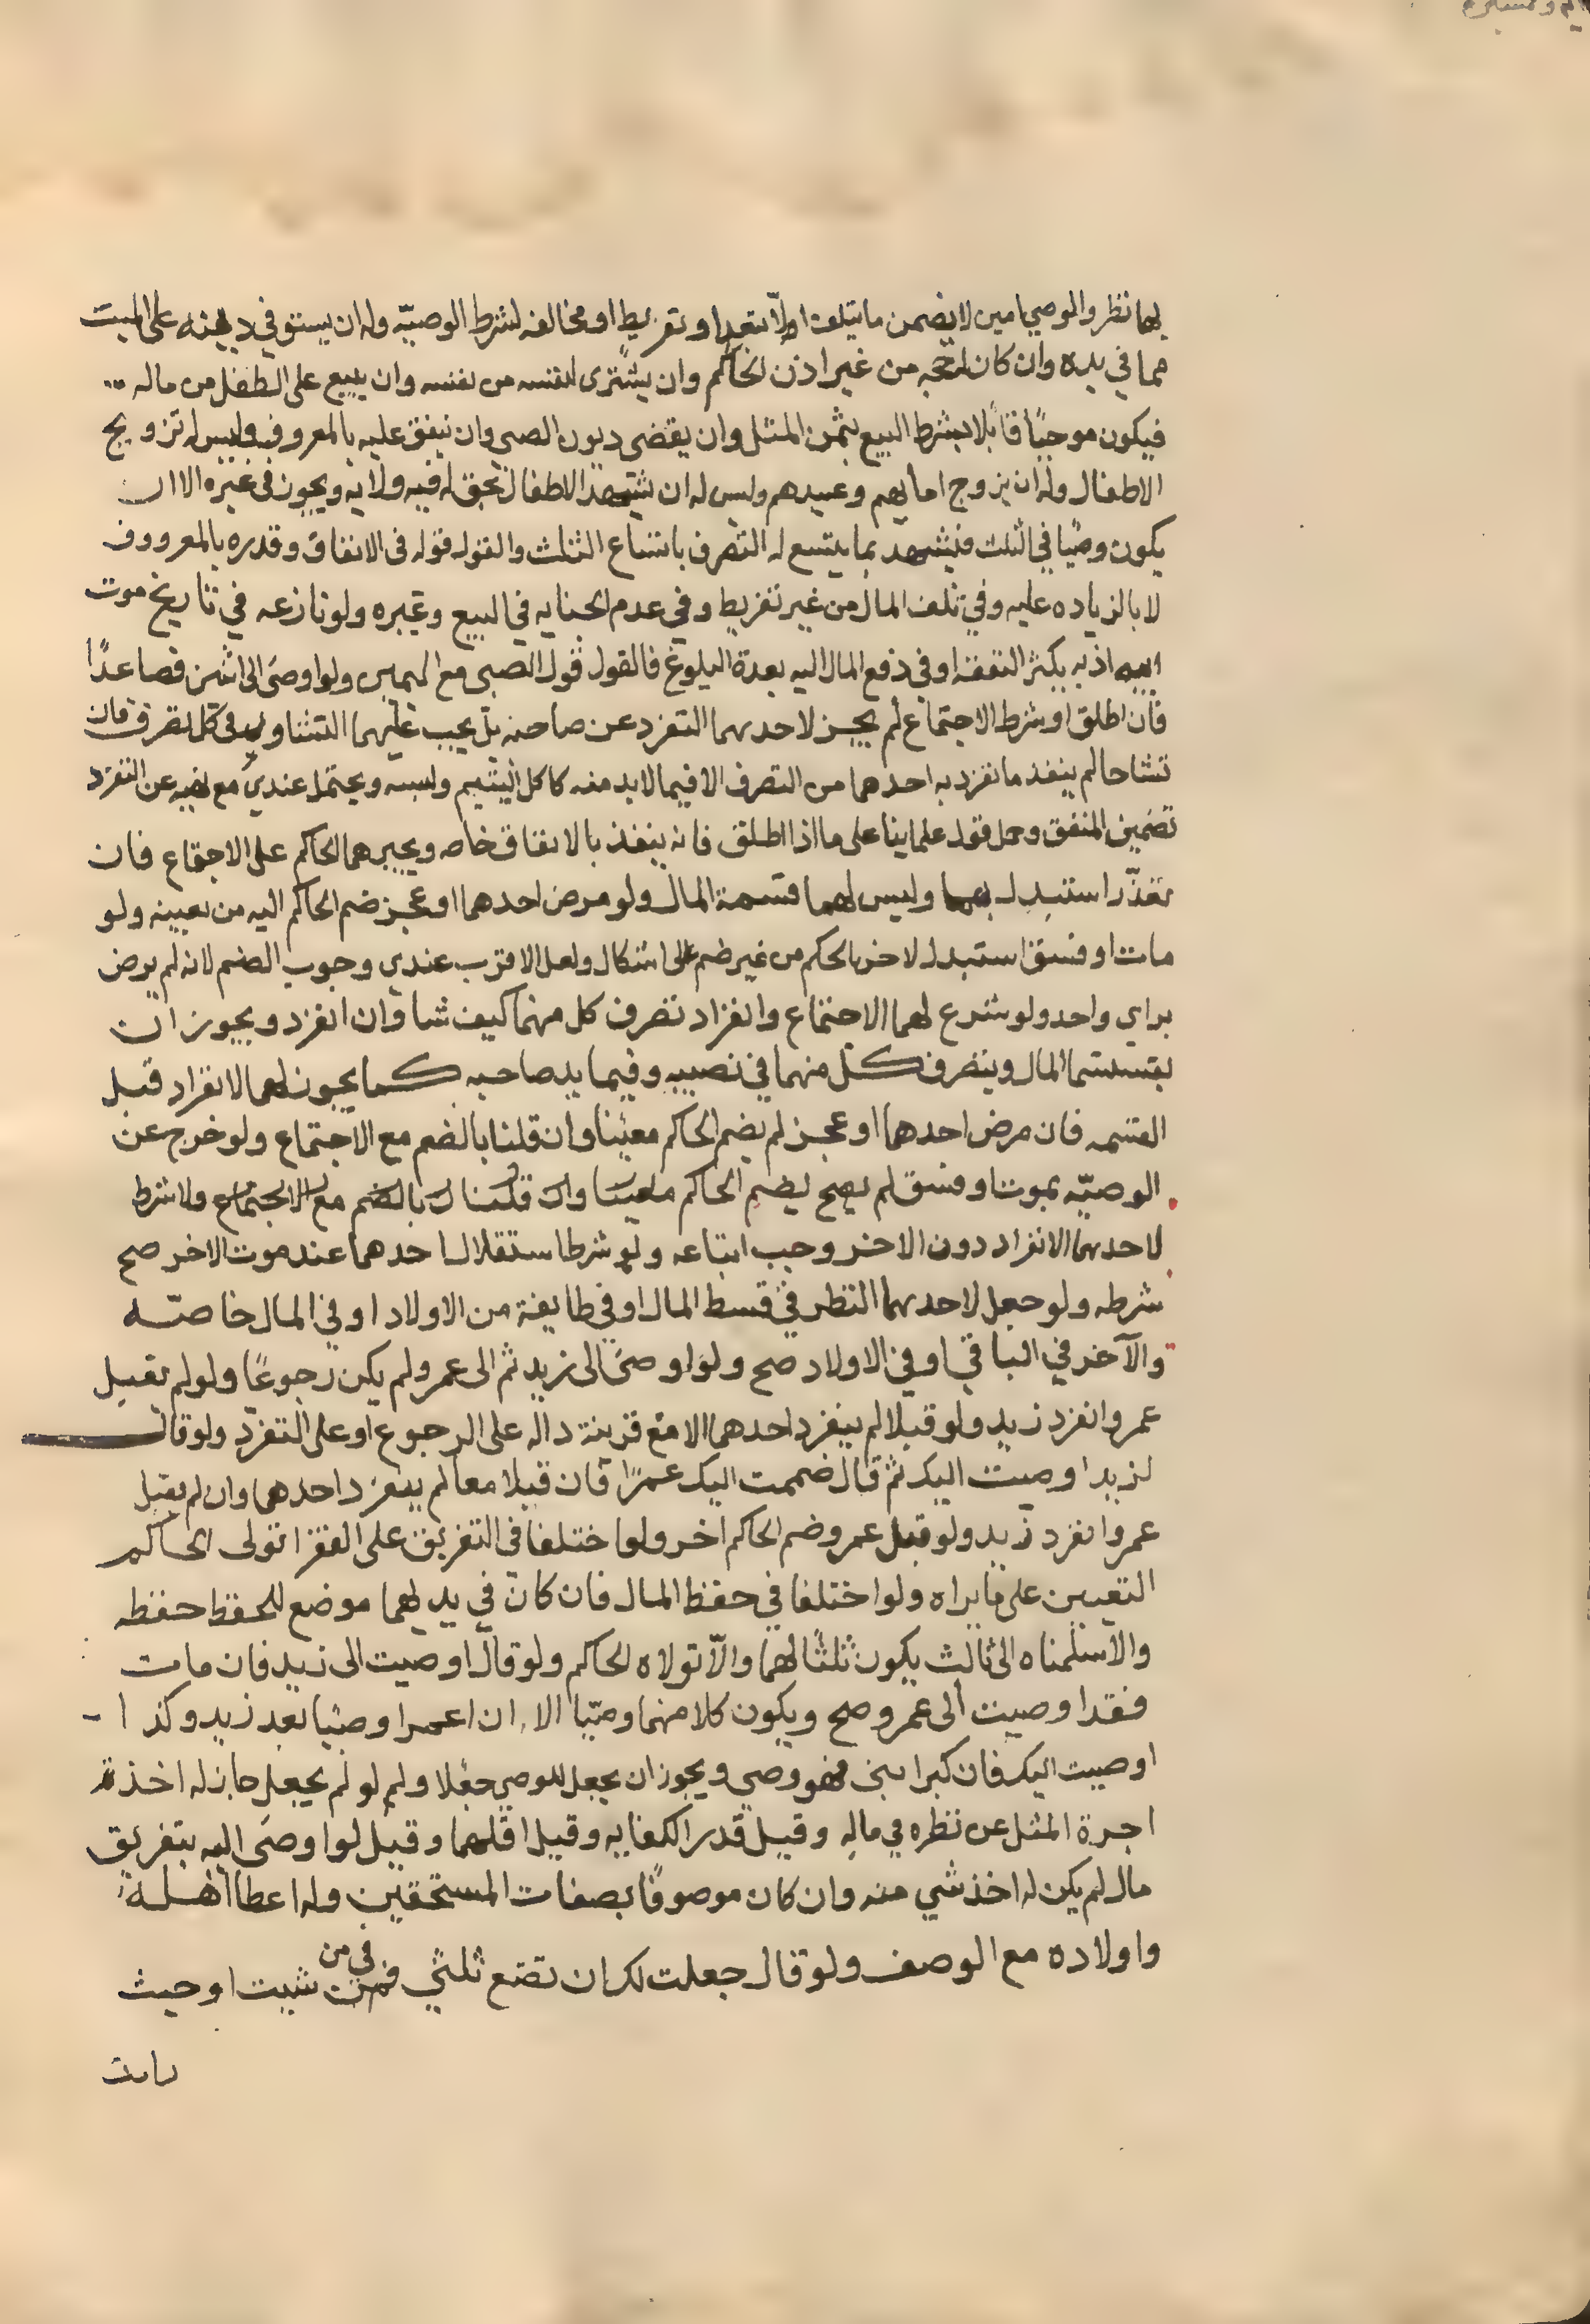 لهما نظر والموصي امين لا يضمن ما يتلف الا بتعد او تفريط او مخالفه لشرط الوصيّه وله ان يستوفي دينه على الميت
مما في يده وان كان له حجه من غير اذن الحاكم وان يشترى لنفسه من نفسه وان يبيع على الطفل من ماله
فيكون موجبًا قابلا بشرط البيع بثمن المثل وان يقضى ديون الصبي وان ينفق عليه بالمعروف وليس له تزويج
الاطفال وله ان يزوج امايهم وعبيدهم وليس له ان يشهد للاطفال بحق له فيه ولايه ويجوز في غيره الا ان
يكون وصيًا في الثلث فيشهد بما يتسع له التصرف باتساع الثلث والقول قوله فى الانفاق وقدره بالمعروف
لا بالزياده عليه وفي تلف المال من غير تفريط وفي عدم الخيانه في البيع وغيره ولو نازعه في تاريخ موت
ابيه اذ به يكثر النفقه او في دفع المال اليه بعد البلوغ فالقول قول الصبي مع اليمين ولو اوصى الى اثنين فصاعدًا
فان اطلق او شرط الاجتماع لم يجز لاحدهما التفرد عن صاحبه بل يجب عليهما التشاور في كل تصرف فان
تشاحا لم ينفذ ما تفرد به احدهما من التصرف الا فيما لا بد منه كاكل اليتيم ولبسه ويحتمل عندي مع نهيه عن التفرد
تضمين المنفق وحمل قول علماينا على ما اذا اطلق فانه ينفذ بالانفاق خاصه ويجبرهما الحاكم على الاجتماع فان
تعذّر استبدل بهما وليس لهما قسمة المال ولو مرض احدهما او عجز ضم الحاكم اليه من يعينه ولو
مات او فسق استبدل الاخر بالحكم من غير ضم على اشكال ولعل الاقرب عندي وجوب الضم لانه لم يرض
براي واحد ولو شرع لهما الاجتماع وانفراد تصرف كل منهما كيف شا وان انفرد ويجوز ان
يقتسما المال ويتصرف كل منهما في نصيبه وفيما بيد صاحبه كما يجوز لهما الانفراد قبل
القسمه فان مرض احدهما او عجز لم يضم الحاكم معينا وان قلنا بالضم مع الاجتماع ولو خرج عن
الوصيّه بموت او فسق لم يصح يضم الحاكم معينا وان قلنا بالضم مع الاجتماع ولا شرط
لاحدهما الانفراد دون الاخر وجب اتباعه ولو شرط استقلال احدهما عند موت الاخر صح
شرطه ولو جعل لاحدهما النظر في قسط المال او في طايفة من الاولاد او في المال خاصّه
والآخر في الباقي او في الاولاد صح ولو اوصى الى زيد ثم الى عمرو لم يكن رجوعًا ولو لم يقبل
عمرو انفرد زيد ولو قبلا لم ينفرد احدهما الا مع قرينة داله على الرجوع او على التفرد ولو قال
لزيد اوصيت اليك ثم قال ضممت اليك عمرًا فان قبلا معا لم ينفرد احدهما وان لم يقبل
عمرو انفرد زيد ولو قبل عمرو ضم الحاكم اخر ولو اختلفا في التفريق على الفقرا تولى الحاكم
التعيين على ما يراه ولو اختلفا في حفظ المال فان كان في يديهما موضع للحفظ حفظه
والا سلمناه الى ثالث يكون ثلثًا لهما والّا تولاه الحاكم ولو قال اوصيت الى زيد فان مات
فقد اوصيت الى عمرو صح ويكون كلا منهما وصيّا الا ان اعمرا وصيًا بعد زيد وكذا
اوصيت اليك فان كبر ابني فهو وصي ويجوز ان يجعل للوصي جعلا ولم لو لم يجعل جاز له اخذ
اجرة المثل عن نظره في ماله وقيل قدر الكفايه وقيل اقلهما وقيل لو اوصى اليه بتفريق
مال لم يكن له اخذ شي منه وان كان موصوفًا بصفات المستحقين وله اعطا اهله
واولاده مع الوصف ولو قال جعلت لك ان تضع ثلثي فمن في من شيت او حيث
رايت